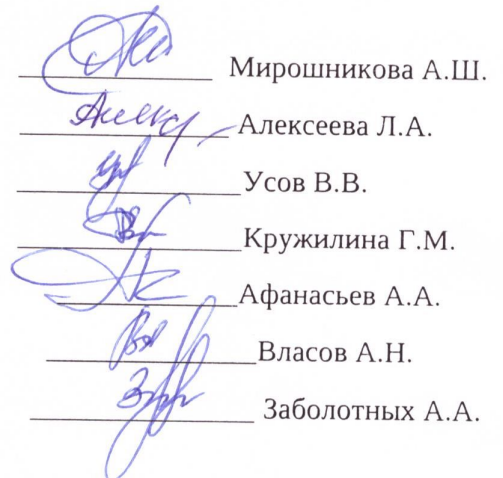 Мирошникова А.Ш.
Алексеева Л.А.
Усов В.В.
Кружилина Г.М.
Афанасьев А.А.
Власов А.Н.
Заболотных А.А.